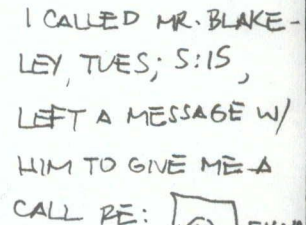 I CALLED MR. BLAKE-
LEY, TUES; 5:15,
LEFT A MESSAGE W/
HIM TO GIVE ME A
CALL RE: